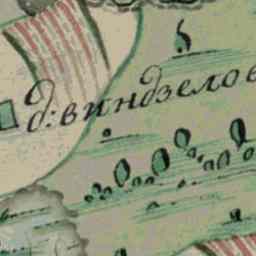 д: виндзелов